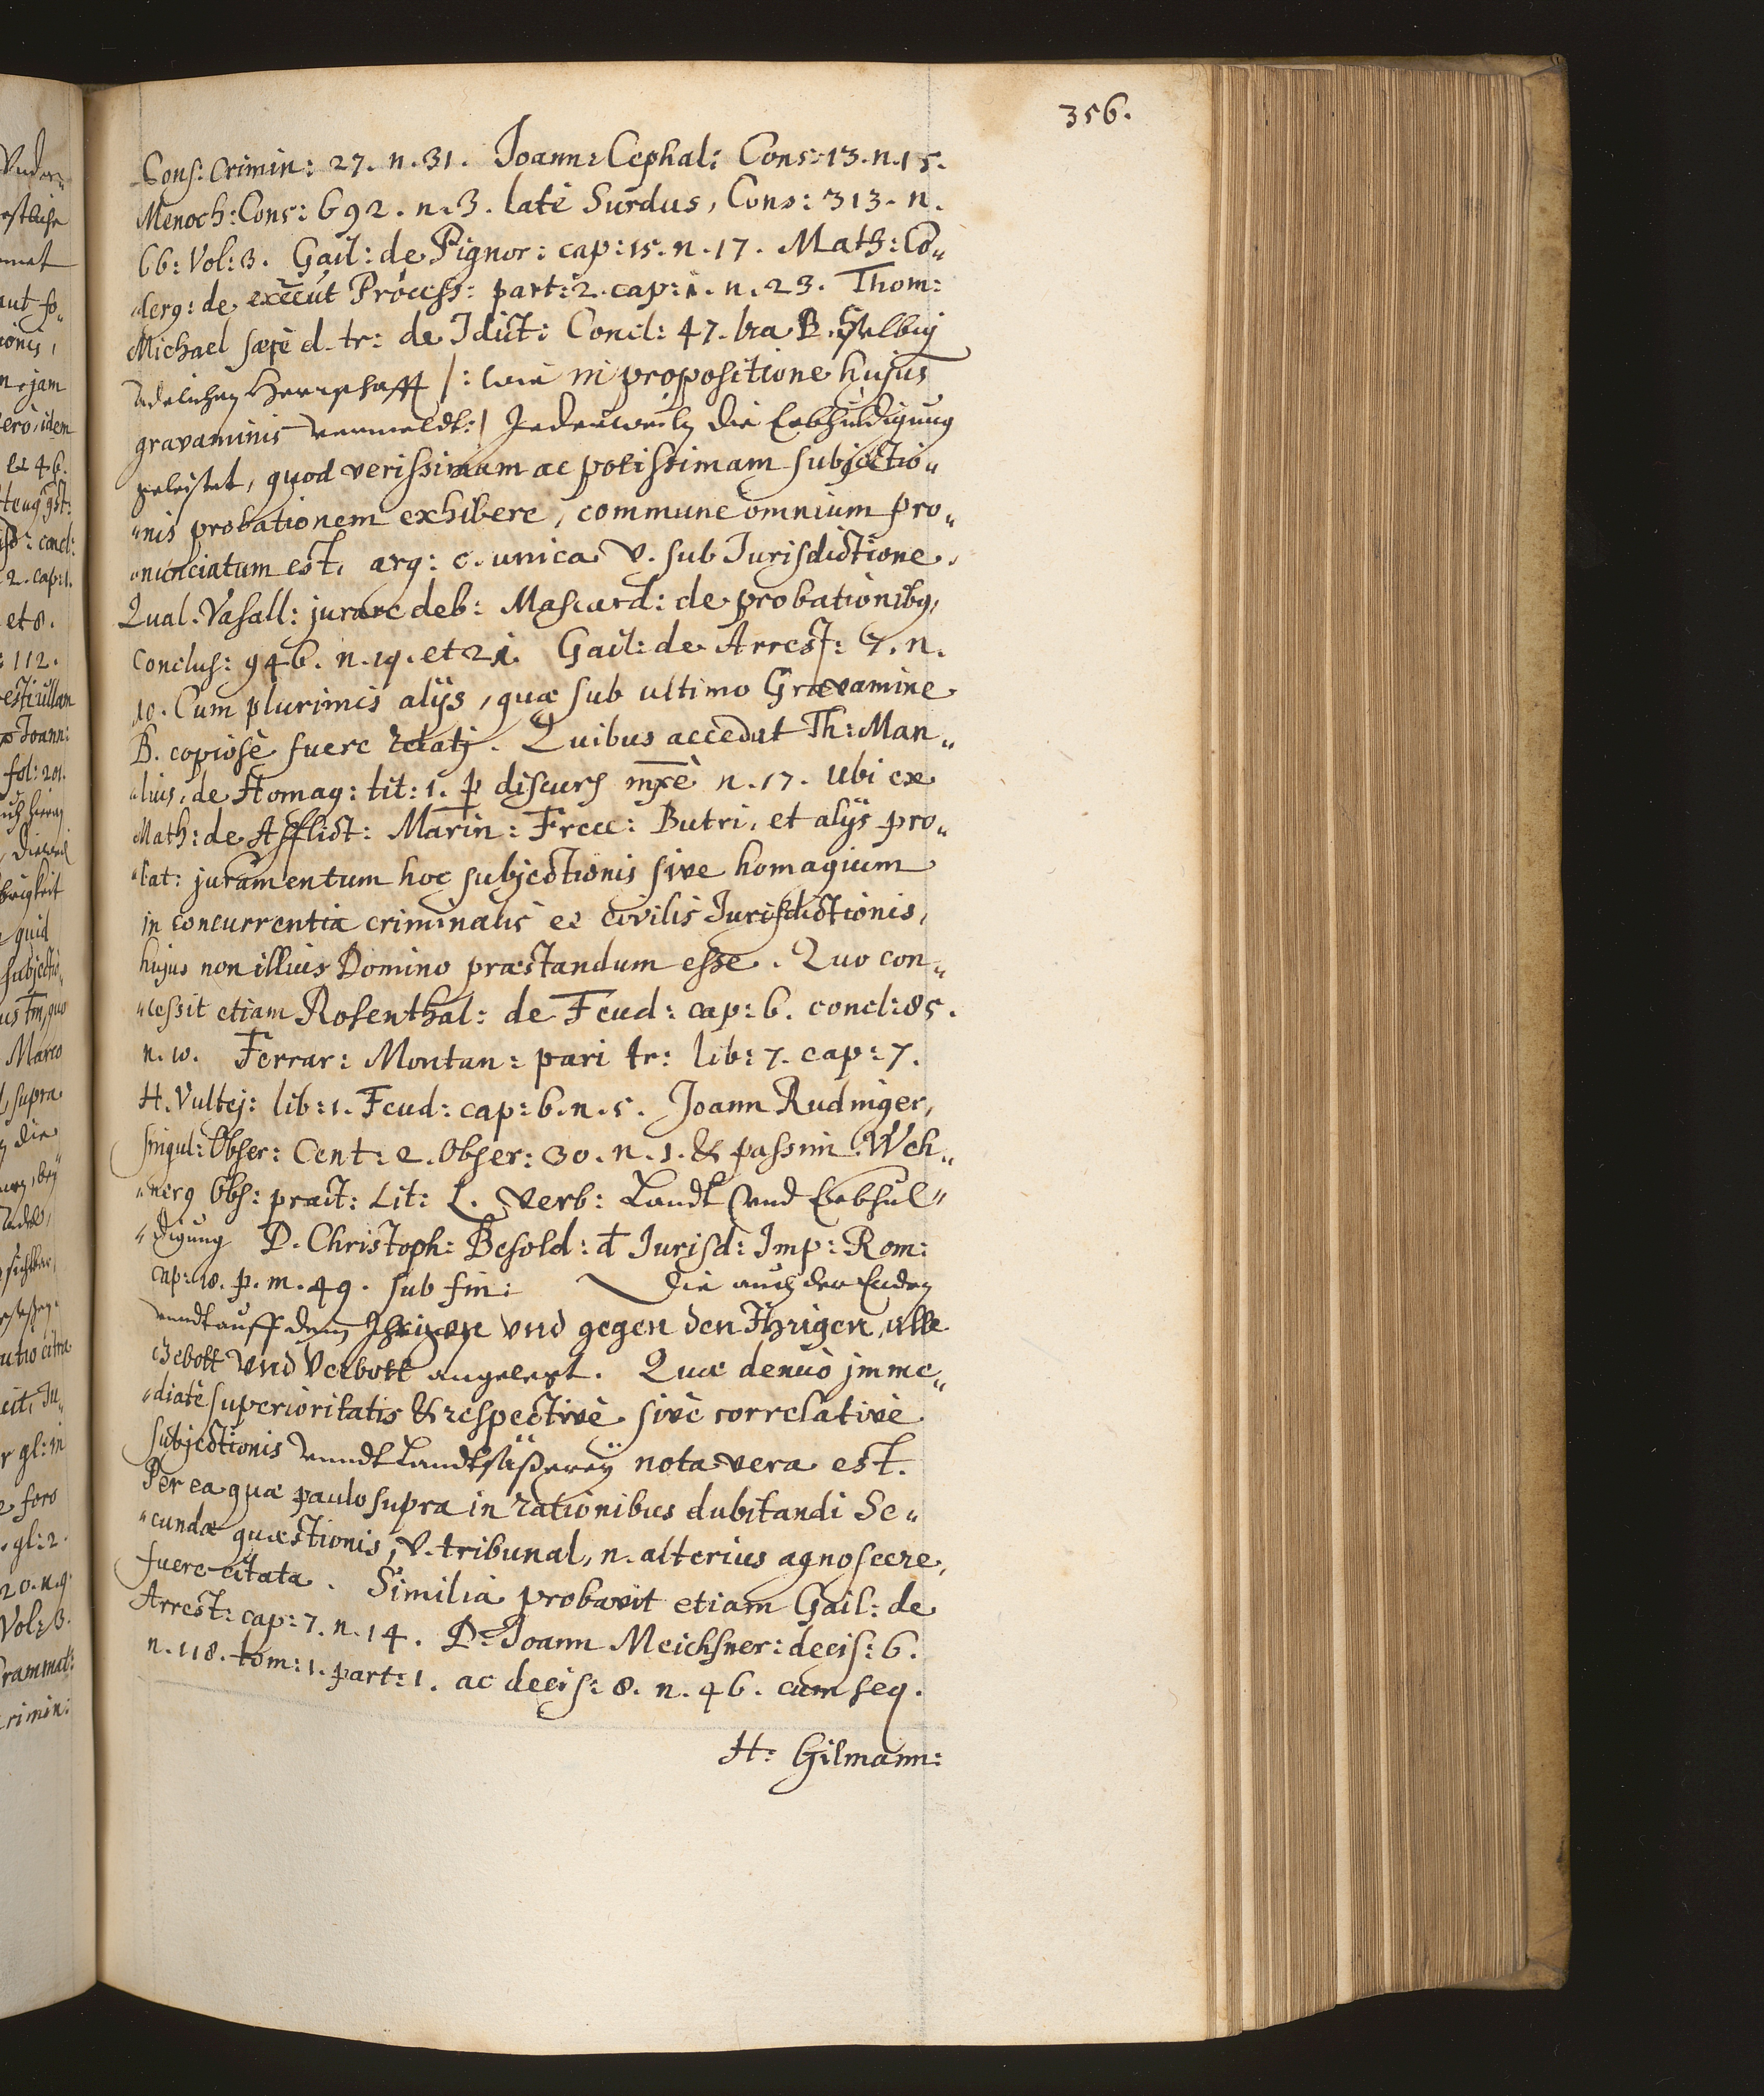 356.
Cons: Crimin: 27. n. 31. Joann: Cephal: Cons: 13. n. 15.
Menoch: Cons: 692. n. 3. latè Surdus, Cons: 313. n.
66: Vol: 3. Gail: de Pignor: cap: 15. n. 17. Math: Co„
„lerg: de execut Process: part: 2. cap: 1. n. 23. Thom:
Michael sæpè d. tr: de Jdict: Concl: 47. lra B. Selbig
Adelichen Herrschafft /: wie in propositione hujus
gravaminis vermeldt: / Jederweiln die Erbhuldigung
geleistet, quod verissimam ac potissimam subjectio„
„nis probationem exhibere, commune omnium pro„
„nunciatum est, arg: c. unica V. sub Jurisdictione.
Qual. Vasall: jurare deb: Mascard: de probationibg,
Conclus: 946. n. 19. et 21. Gail: de Arrest: 7. n.
10. Cum plurimis alijs, quæ sub ultimo Gravamine
B. copiosè fuere relatj. Quibus accedat Th: Man„
„lius, de Homag: tit: 1. p discurs mxè n. 17. Ubi ex
Math: de Afflict: Marin: Frecc: Butri. et alijs pro„
„bat: juramentum hoc subjectionis sive homagium
in concurrentia criminalis et civilis Jurisdictionis,
hujus non illius Domino præstandum esse. Quo con„
„cessit etiam Rosenthal: de Feud: cap: 6. concl: 85.
n. 10. Ferrar: Montan: pari tr: lib: 7. cap: 7.
H. Vultej: lib: 1. Feud: cap: 6. n. 5. Joann Rudinger,
singul: Obser: Cent: 2. Obser: 30. n. 1. & passim Weh„
„nerg Obs: pract: Lit: L. Verb: Landt vnd Erbhul„
„digung D. Christoph: Besold: d Jurisd: Imp: Rom:
cap: 18. p. m. 49. sub fin: Die auch der Enden
vnndt auff dem Jhrigen vnd gegen den Jhrigen, alle
Gebott vnd Verbott angelegt. Quæ denuò jmme„
„diatè superioritatis & respectivè sivè correlativè
subjectionis vnndt Landtsäßereÿ nota vera est.
Per ea quæ paulo supra in rationibus dubitandi Se„
„cundæ quæstionis, V. tribunal, n. alterius agnoscere,
fuere citata. Similia probavit etiam Gail: de
Arrest: cap: 7. n. 14. D. Joann Meichsner: decis: 6.
n. 118. tom: 1. part: 1. ac decis: 8. n. 46. cum seq.
H: Gilmann: